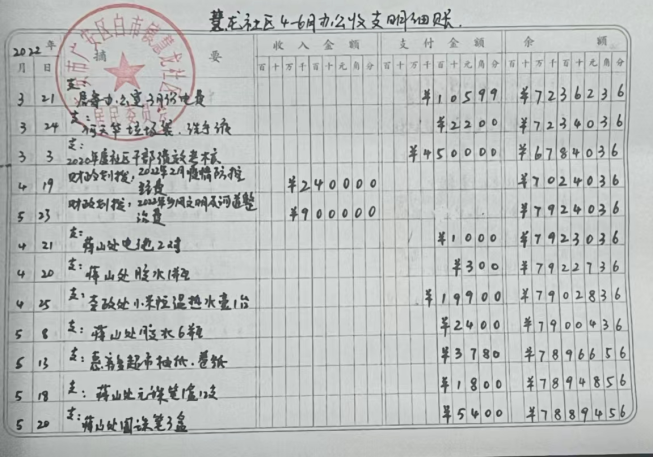 慧龙社区4-6月办公收支明细账.
2022年 摘要 收入金额 支付金额 余额
月 日 百十万千百十元角分 百十万千百十元角分 百十万千百十元角分
3 21 支: 居委办公室3月份电费 ¥10599 ¥7236236
3 24 支: 垃圾袋、洗手液 ¥2200 ¥7234036
3 3 支: 2020年度社区干部绩效考核 ¥450000 ¥6784036
4 19 财政划拨,2022年2月疫情防控经费 ¥240000 ¥7024036
5 23 财政划拨,2022年乡风文明及河道整治费 ¥900000 ¥7924036
4 21 支: 蒋山处电池2对 ¥1000 ¥7923036
4 20 支: 蒋山处胶水1瓶 ¥300 ¥7922736
4 25 支: 处小米恒温热水壶1台 ¥19900 ¥7902836
5 8 支: 蒋山处胶水6瓶 ¥2400 ¥7900436
5 13 支: 超市抽纸、卷纸 ¥3780 ¥7896656
5 18 支: 蒋山处 笔1盒12支 ¥1800 ¥7894856
5 20 支: 蒋山处 笔3盒 ¥5400 ¥7889456